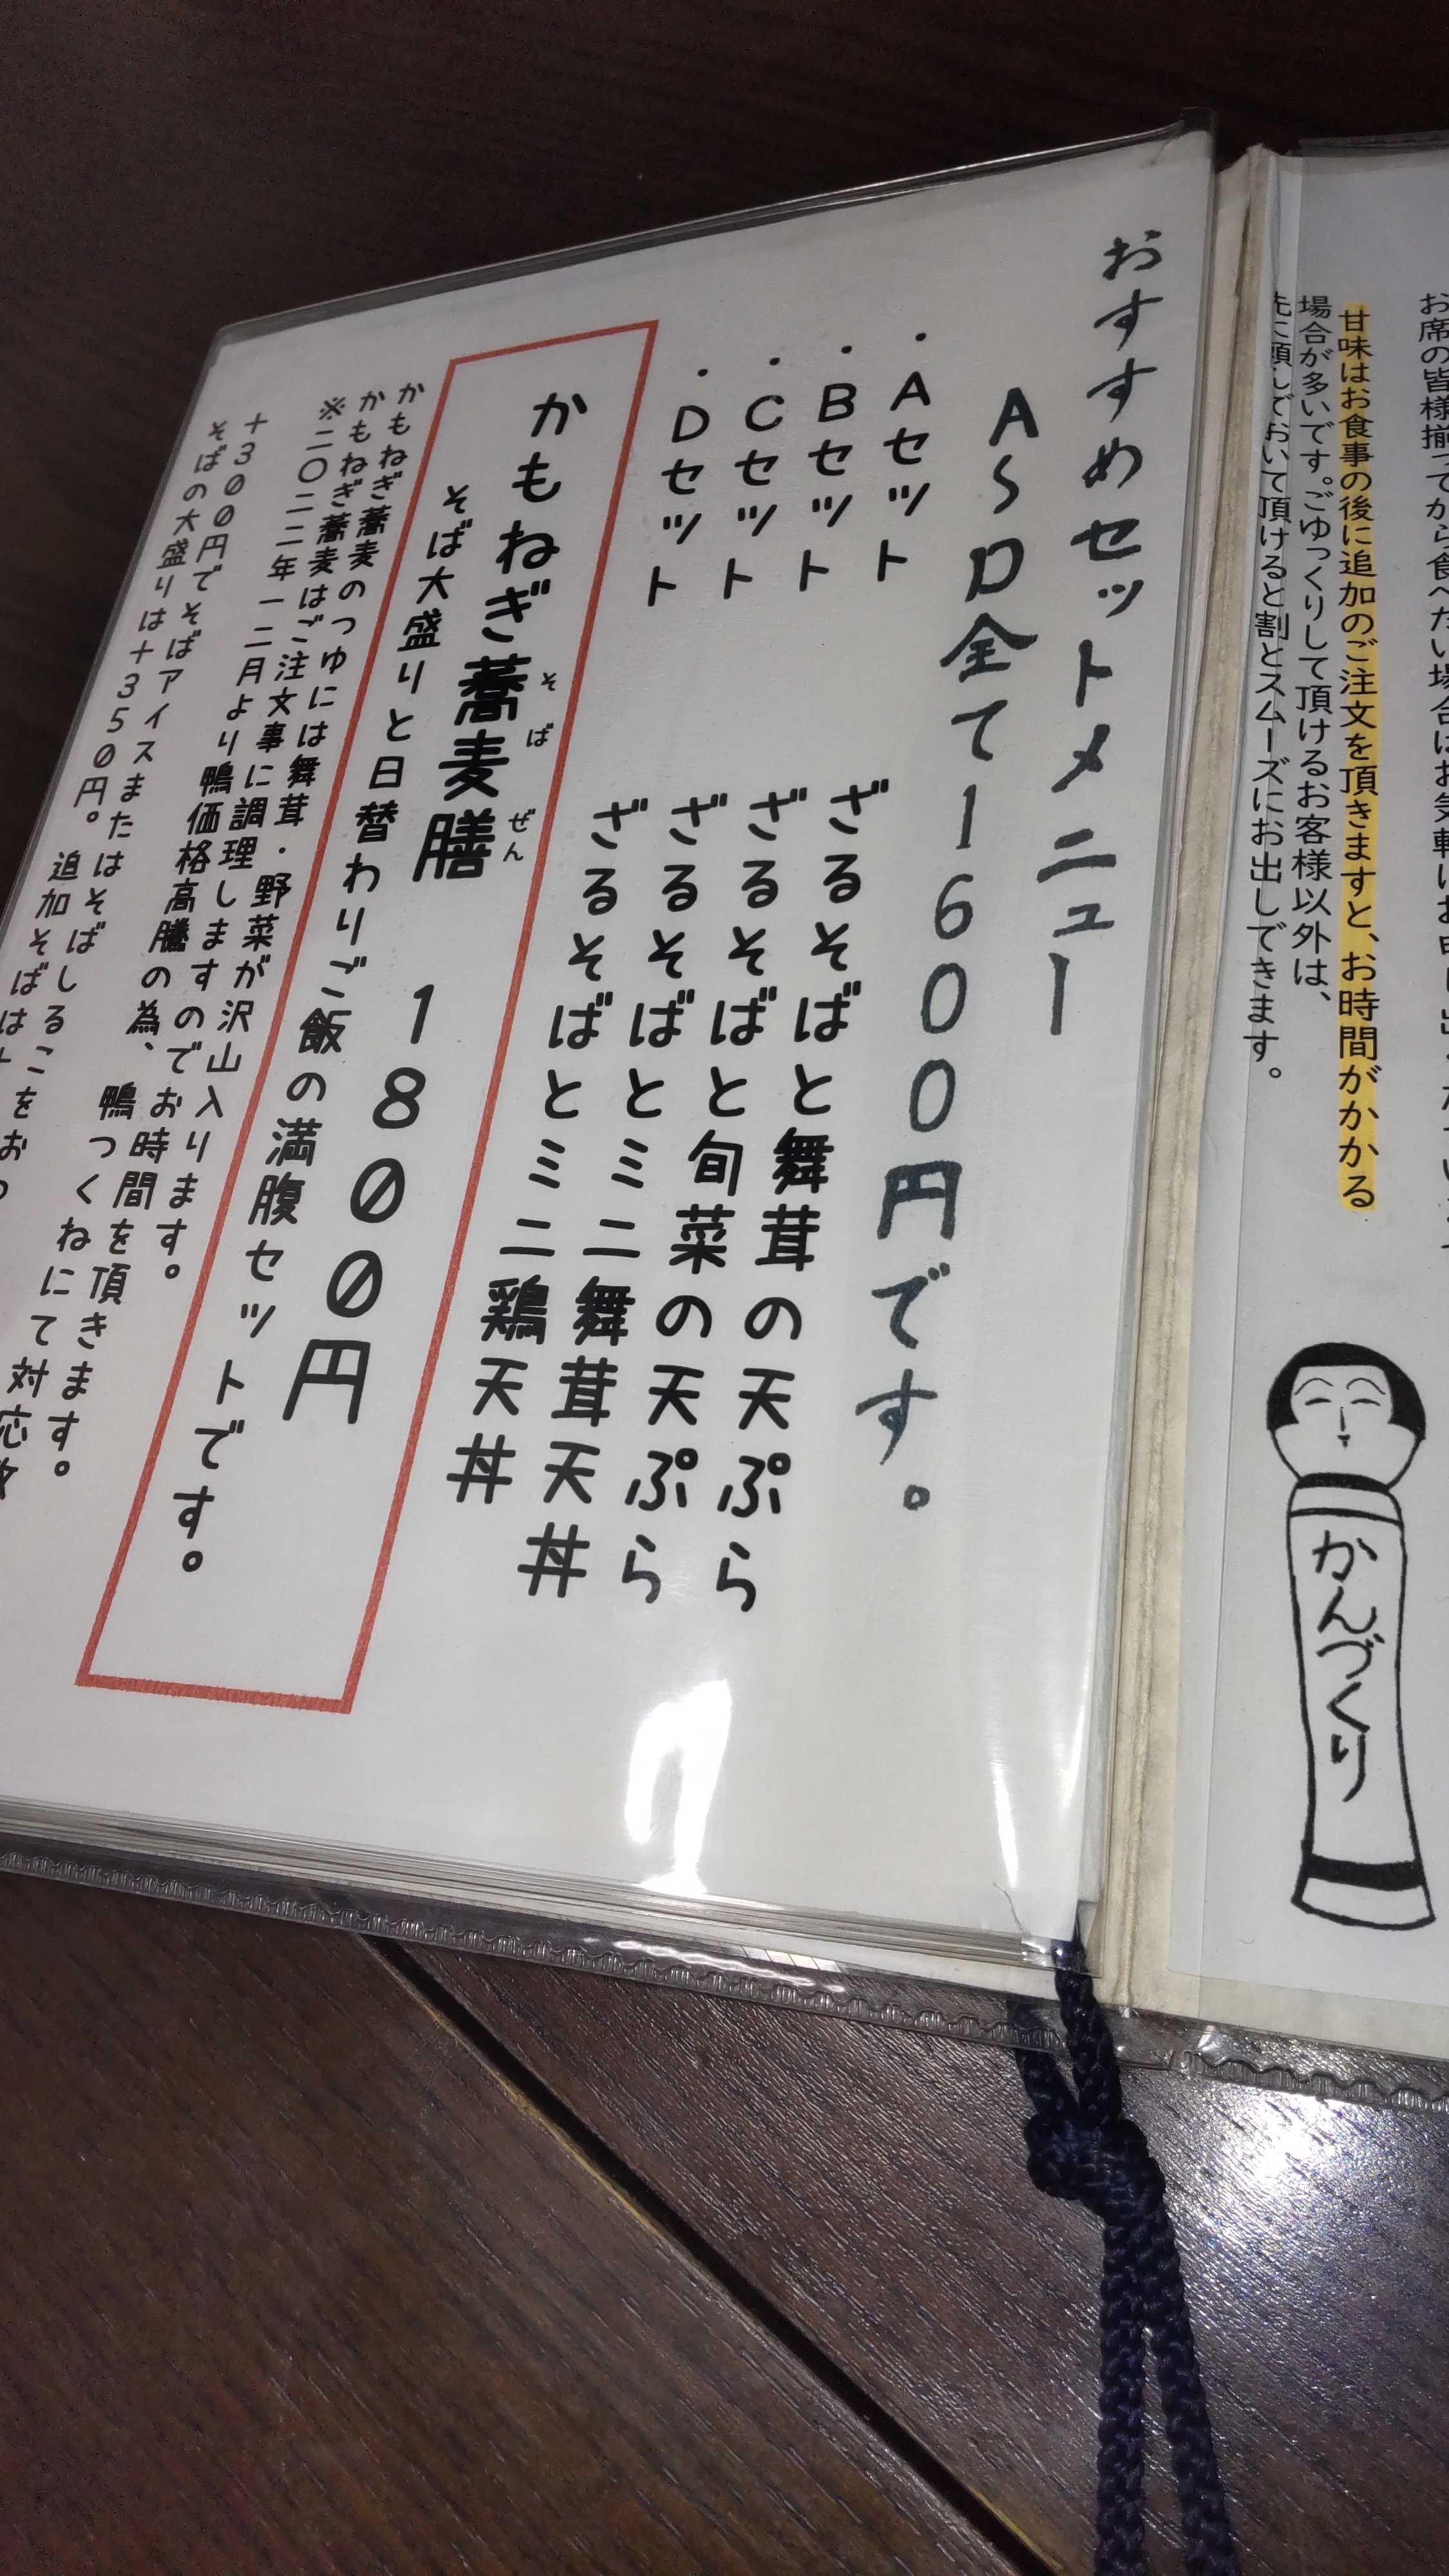 お席の皆様揃ってから食べたい場合はお気軽にお申し出
甘味はお食事の後に追加のご注文を頂きますと、お時間がかかる
場合が多いです。ごゆっくりして頂けるお客様以外は、
先に頼んでおいて頂けると割とスムーズにお出しできます。
かんづくり
おすすめセットメニュー
A〜D全て1600円です。
・Aセット ざるそばと舞茸の天ぷら
・Bセット ざるそばと旬菜の天ぷら
・Cセット ざるそばとミニ舞茸天丼
・Dセット ざるそばとミニ鶏天丼
かもねぎ蕎麦膳 1800円
そばぜん
そば大盛りと日替わりご飯の満腹セットです。
かもねぎ蕎麦のつゆには舞茸・野菜が沢山入ります。
かもねぎ蕎麦はご注文事に調理しますのでお時間を頂きます。
※二〇二二年一二月より鴨価格高騰の為、鴨つくねにて対応
+300円でそばアイスまたはそばしるこをお
そばの大盛りは+350円。追加そばは+